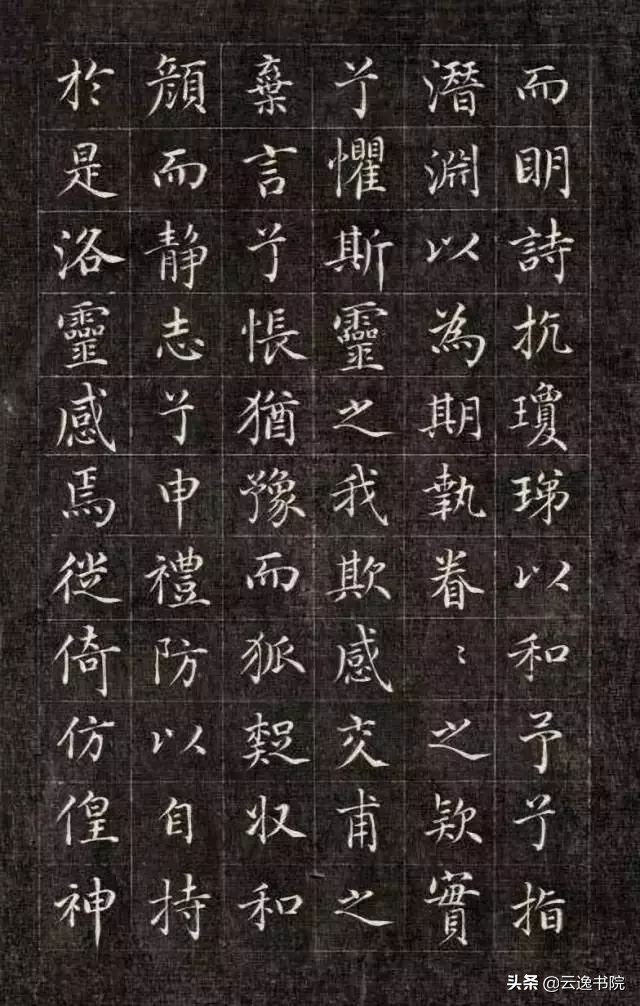 而眀詩抗瓊珶以和予兮指
潛淵以為期執眷〻之欵實
兮懼斯靈之我欺感交甫之
棄言兮悵猶豫而狐疑収和
顏而靜志兮申禮防以自持
於是洛靈感焉徙倚仿偟神
头条 @云逸书院